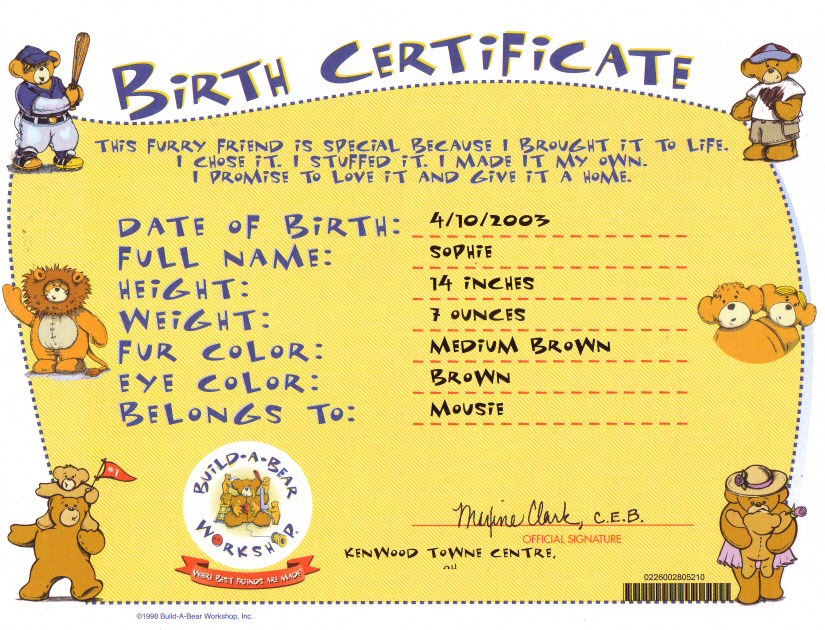 BiRTH CERTiFiCATE
THiS FURRY FRiEND iS SPECiAL BECAUSE I BROUGHT iT TO LiFE.
I CHOSE iT. I STUFFED iT. I MADE IT MY OWN.
I PROMiSE TO LOVE iT AND GiVE iT A HOME.
DATE OF BiRTH: 4/10/2003
FULL NAME: SOPHiE
HEiGHT: 14 iNCHES
WEiGHT: 7 OUNCES
FUR COLOR: MEDiUM BROWN
EYE COLOR: BROWN
BELONGS TO: MOUSiE
#1
BUiLD-A-BEAR
WORKSHOP.
WHERE BEST FRiENDS ARE MADE
Maxine Clark, C.E.B.
OFFICIAL SIGNATURE
KENWOOD TOWNE CENTRE,
OH
0226002805210
©1998 Build-A-Bear Workshop, Inc.